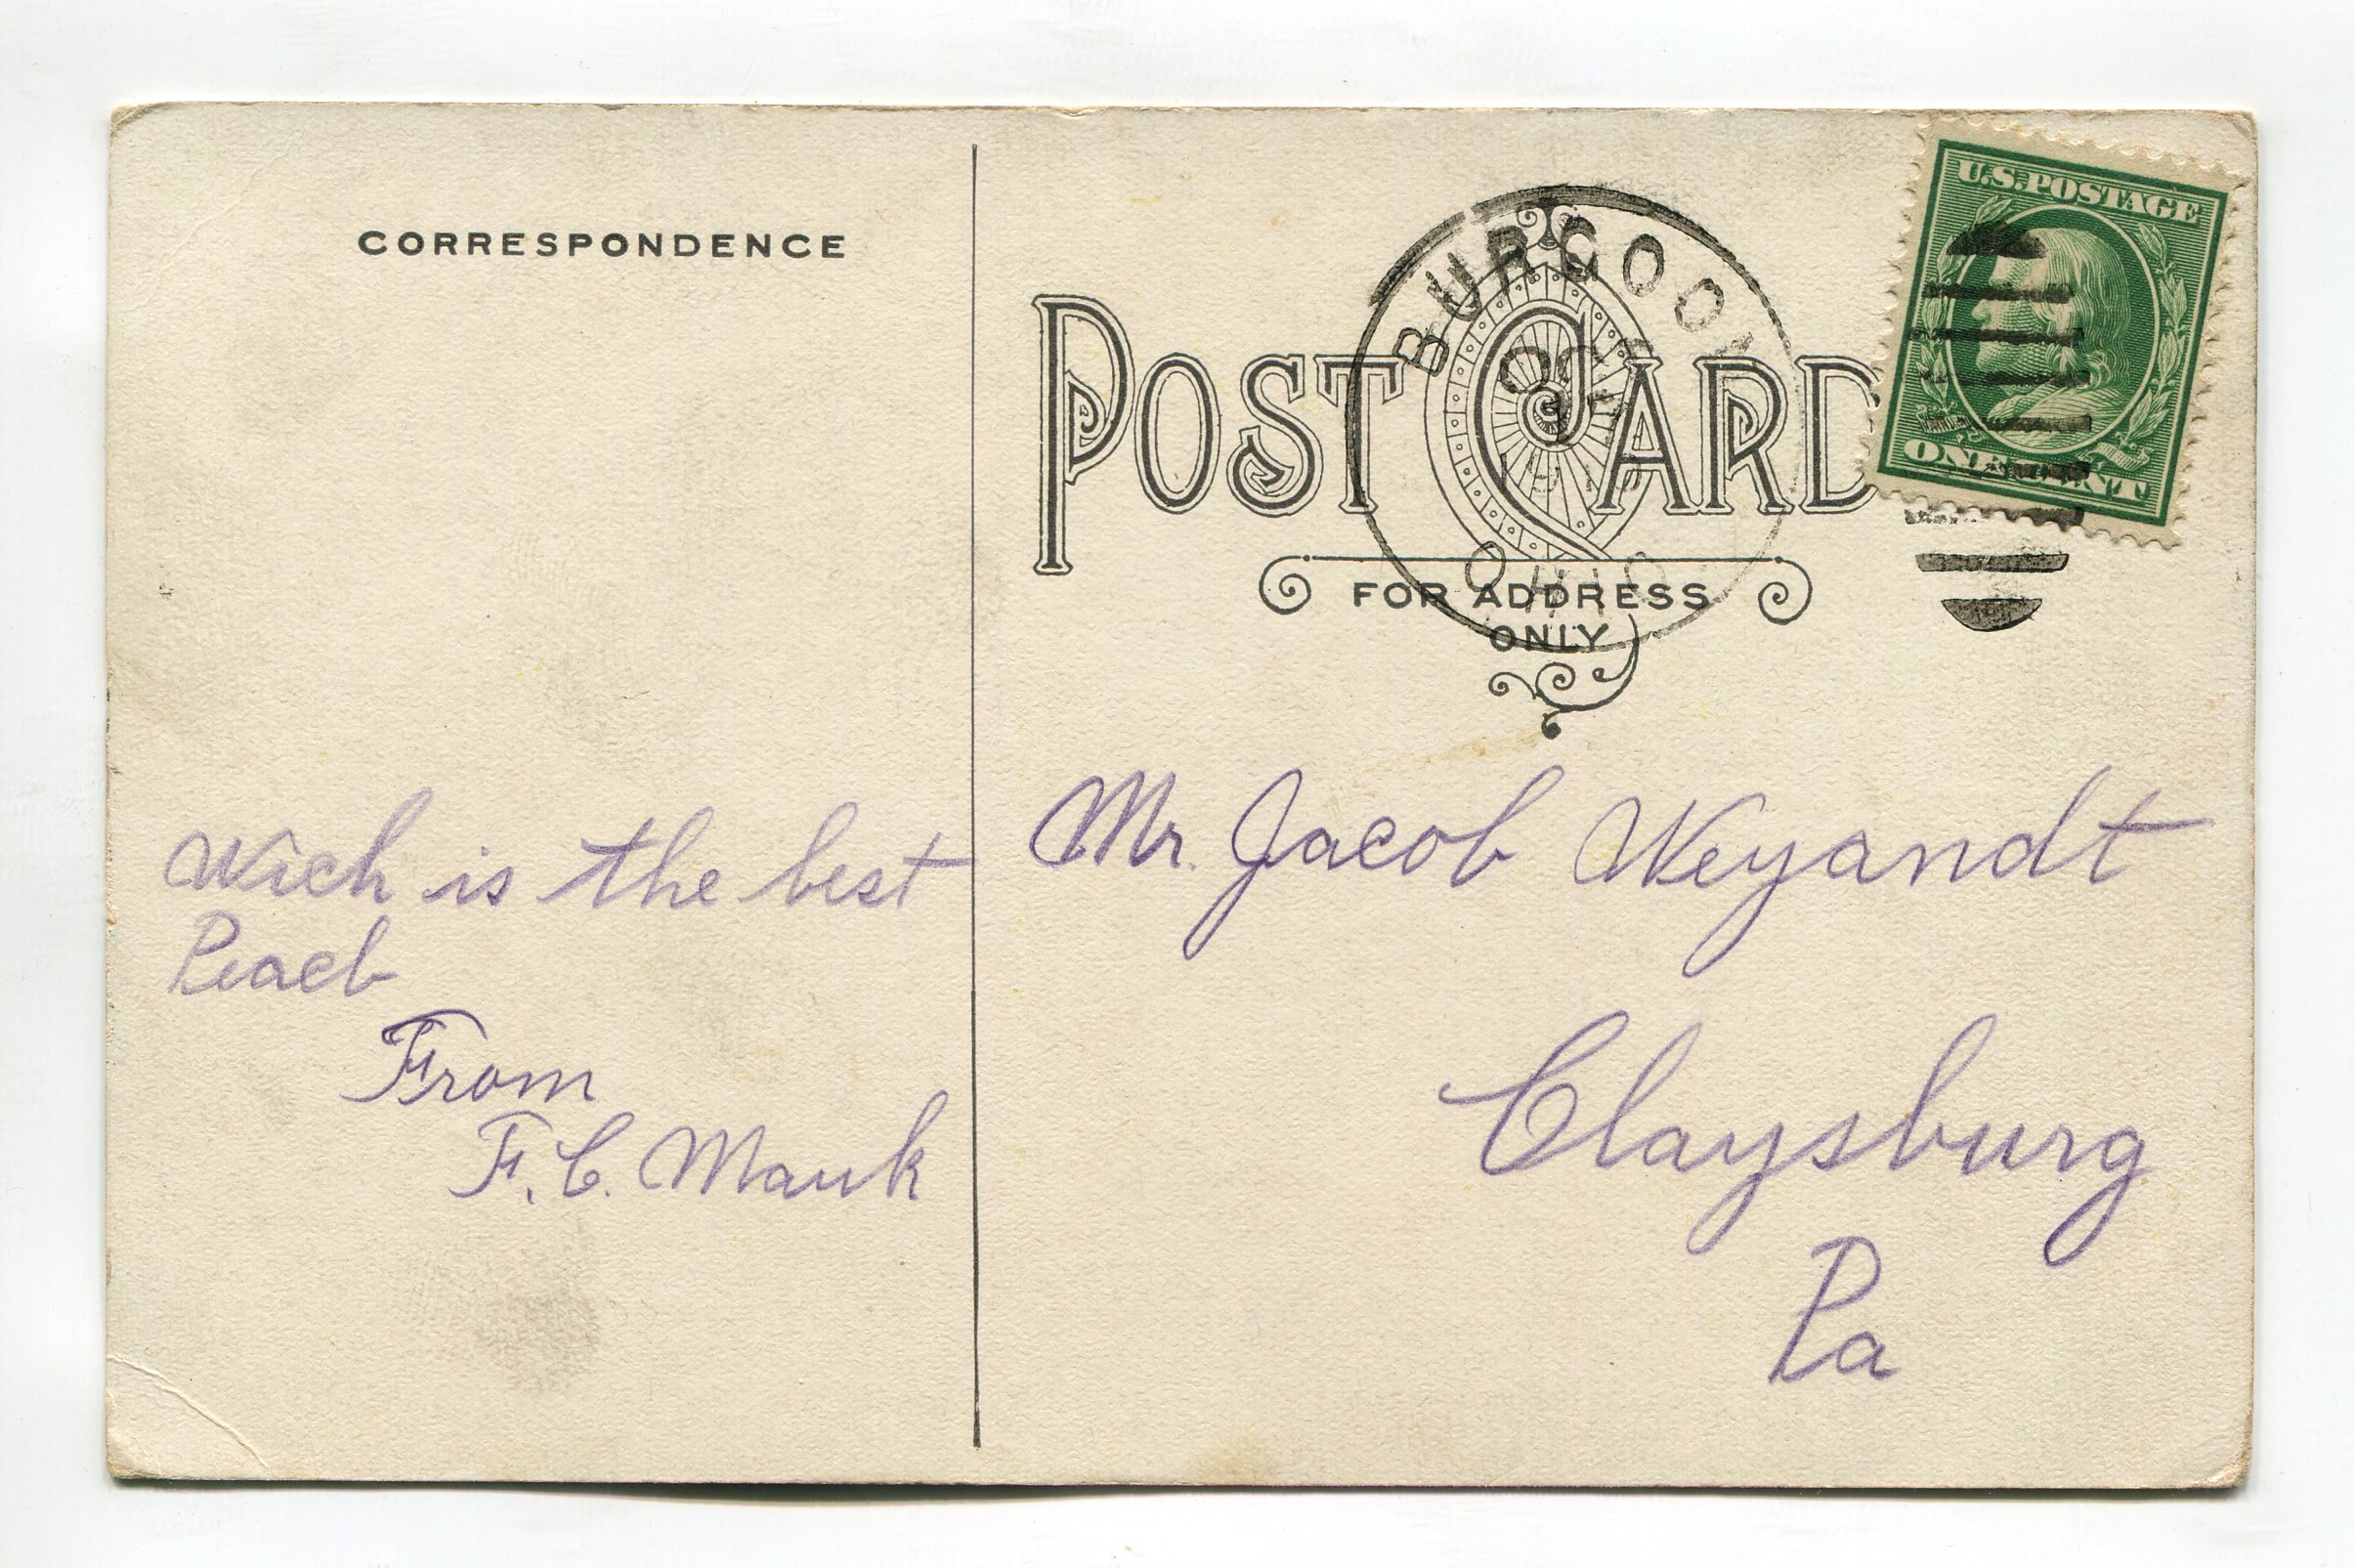 CORRESPONDENCE
POST CARD
FOR ADDRESS
ONLY
BURGOON
OHIO
U.S. POSTAGE
ONE CENT
Wich is the best
Peach
From
F. C. Mauk
Mr. Jacob Weyandt
Claysburg
Pa